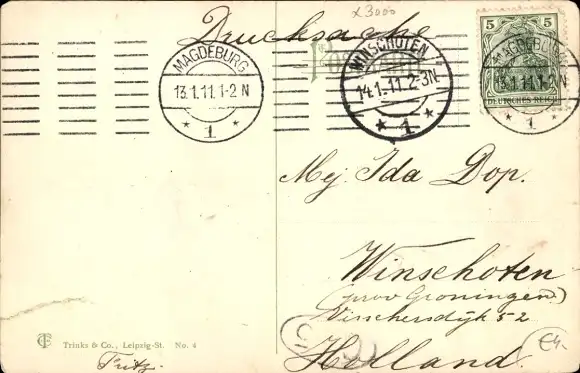 x3000
Drucksache
MAGDEBURG
13.1.11.1-2 N
* 1 *
WINSCHOTEN
14.1.11.2-3N
* 1 *
5 5
DEUTSCHES REICH
MAGDEBURG
13.1.11.1-2 N
* 1 *
Mej. Ida Dop.
Winschoten
(prov Groningen)
Visschersdijk 52
Holland.
€4-
TC Trinks & Co., Leipzig-St. No. 4
Fritz.